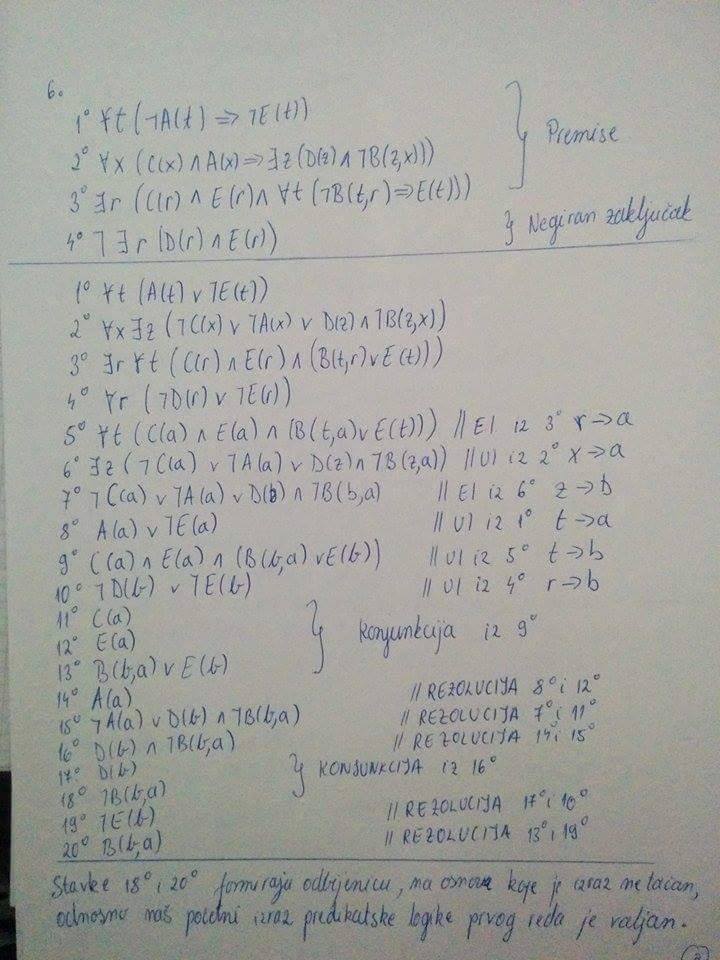 6.
1° ∀t (¬A(t) ⇒ ¬E(t))
2° ∀x (C(x) ∧ A(x) ⇒ ∃z (D(z) ∧ ¬B(z,x)))
3° ∃r (C(r) ∧ E(r) ∧ ∀t (¬B(t,r) ⇒ E(t)))
} Premise
4° ¬∃r (D(r) ∧ E(r))
} Negiran zaključak
1° ∀t (A(t) ∨ ¬E(t))
2° ∀x ∃z (¬C(x) ∨ ¬A(x) ∨ D(z) ∧ ¬B(z,x))
3° ∃r ∀t (C(r) ∧ E(r) ∧ (B(t,r) ∨ E(t)))
4° ∀r (¬D(r) ∨ ¬E(r))
5° ∀t (C(a) ∧ E(a) ∧ (B(t,a) ∨ E(t))) // EI iz 3° r→a
6° ∃z (¬C(a) ∨ ¬A(a) ∨ D(z) ∧ ¬B(z,a)) // UI iz 2° x→a
7° ¬C(a) ∨ ¬A(a) ∨ D(b) ∧ ¬B(b,a) // EI iz 6° z→b
8° A(a) ∨ ¬E(a) // UI iz 1° t→a
9° C(a) ∧ E(a) ∧ (B(b,a) ∨ E(b)) // UI iz 5° t→b
10° ¬D(b) ∨ ¬E(b) // UI iz 4° r→b
11° C(a)
12° E(a)
13° B(b,a) ∨ E(b)
} Konjunkcija iz 9°
14° A(a) // REZOLUCIJA 8° i 12°
15° ¬A(a) ∨ D(b) ∧ ¬B(b,a) // REZOLUCIJA 7° i 11°
16° D(b) ∧ ¬B(b,a) // REZOLUCIJA 14 i 15°
17° D(b)
18° ¬B(b,a)
} KONJUNKCIJA iz 16°
19° ¬E(b) // REZOLUCIJA 17° i 10°
20° B(b,a) // REZOLUCIJA 13° i 19°
Stavke 18° i 20° formiraju odbijenicu, na osnovu koje je izraz netačan,
odnosno naš početni izraz predikatske logike prvog reda je valjan.